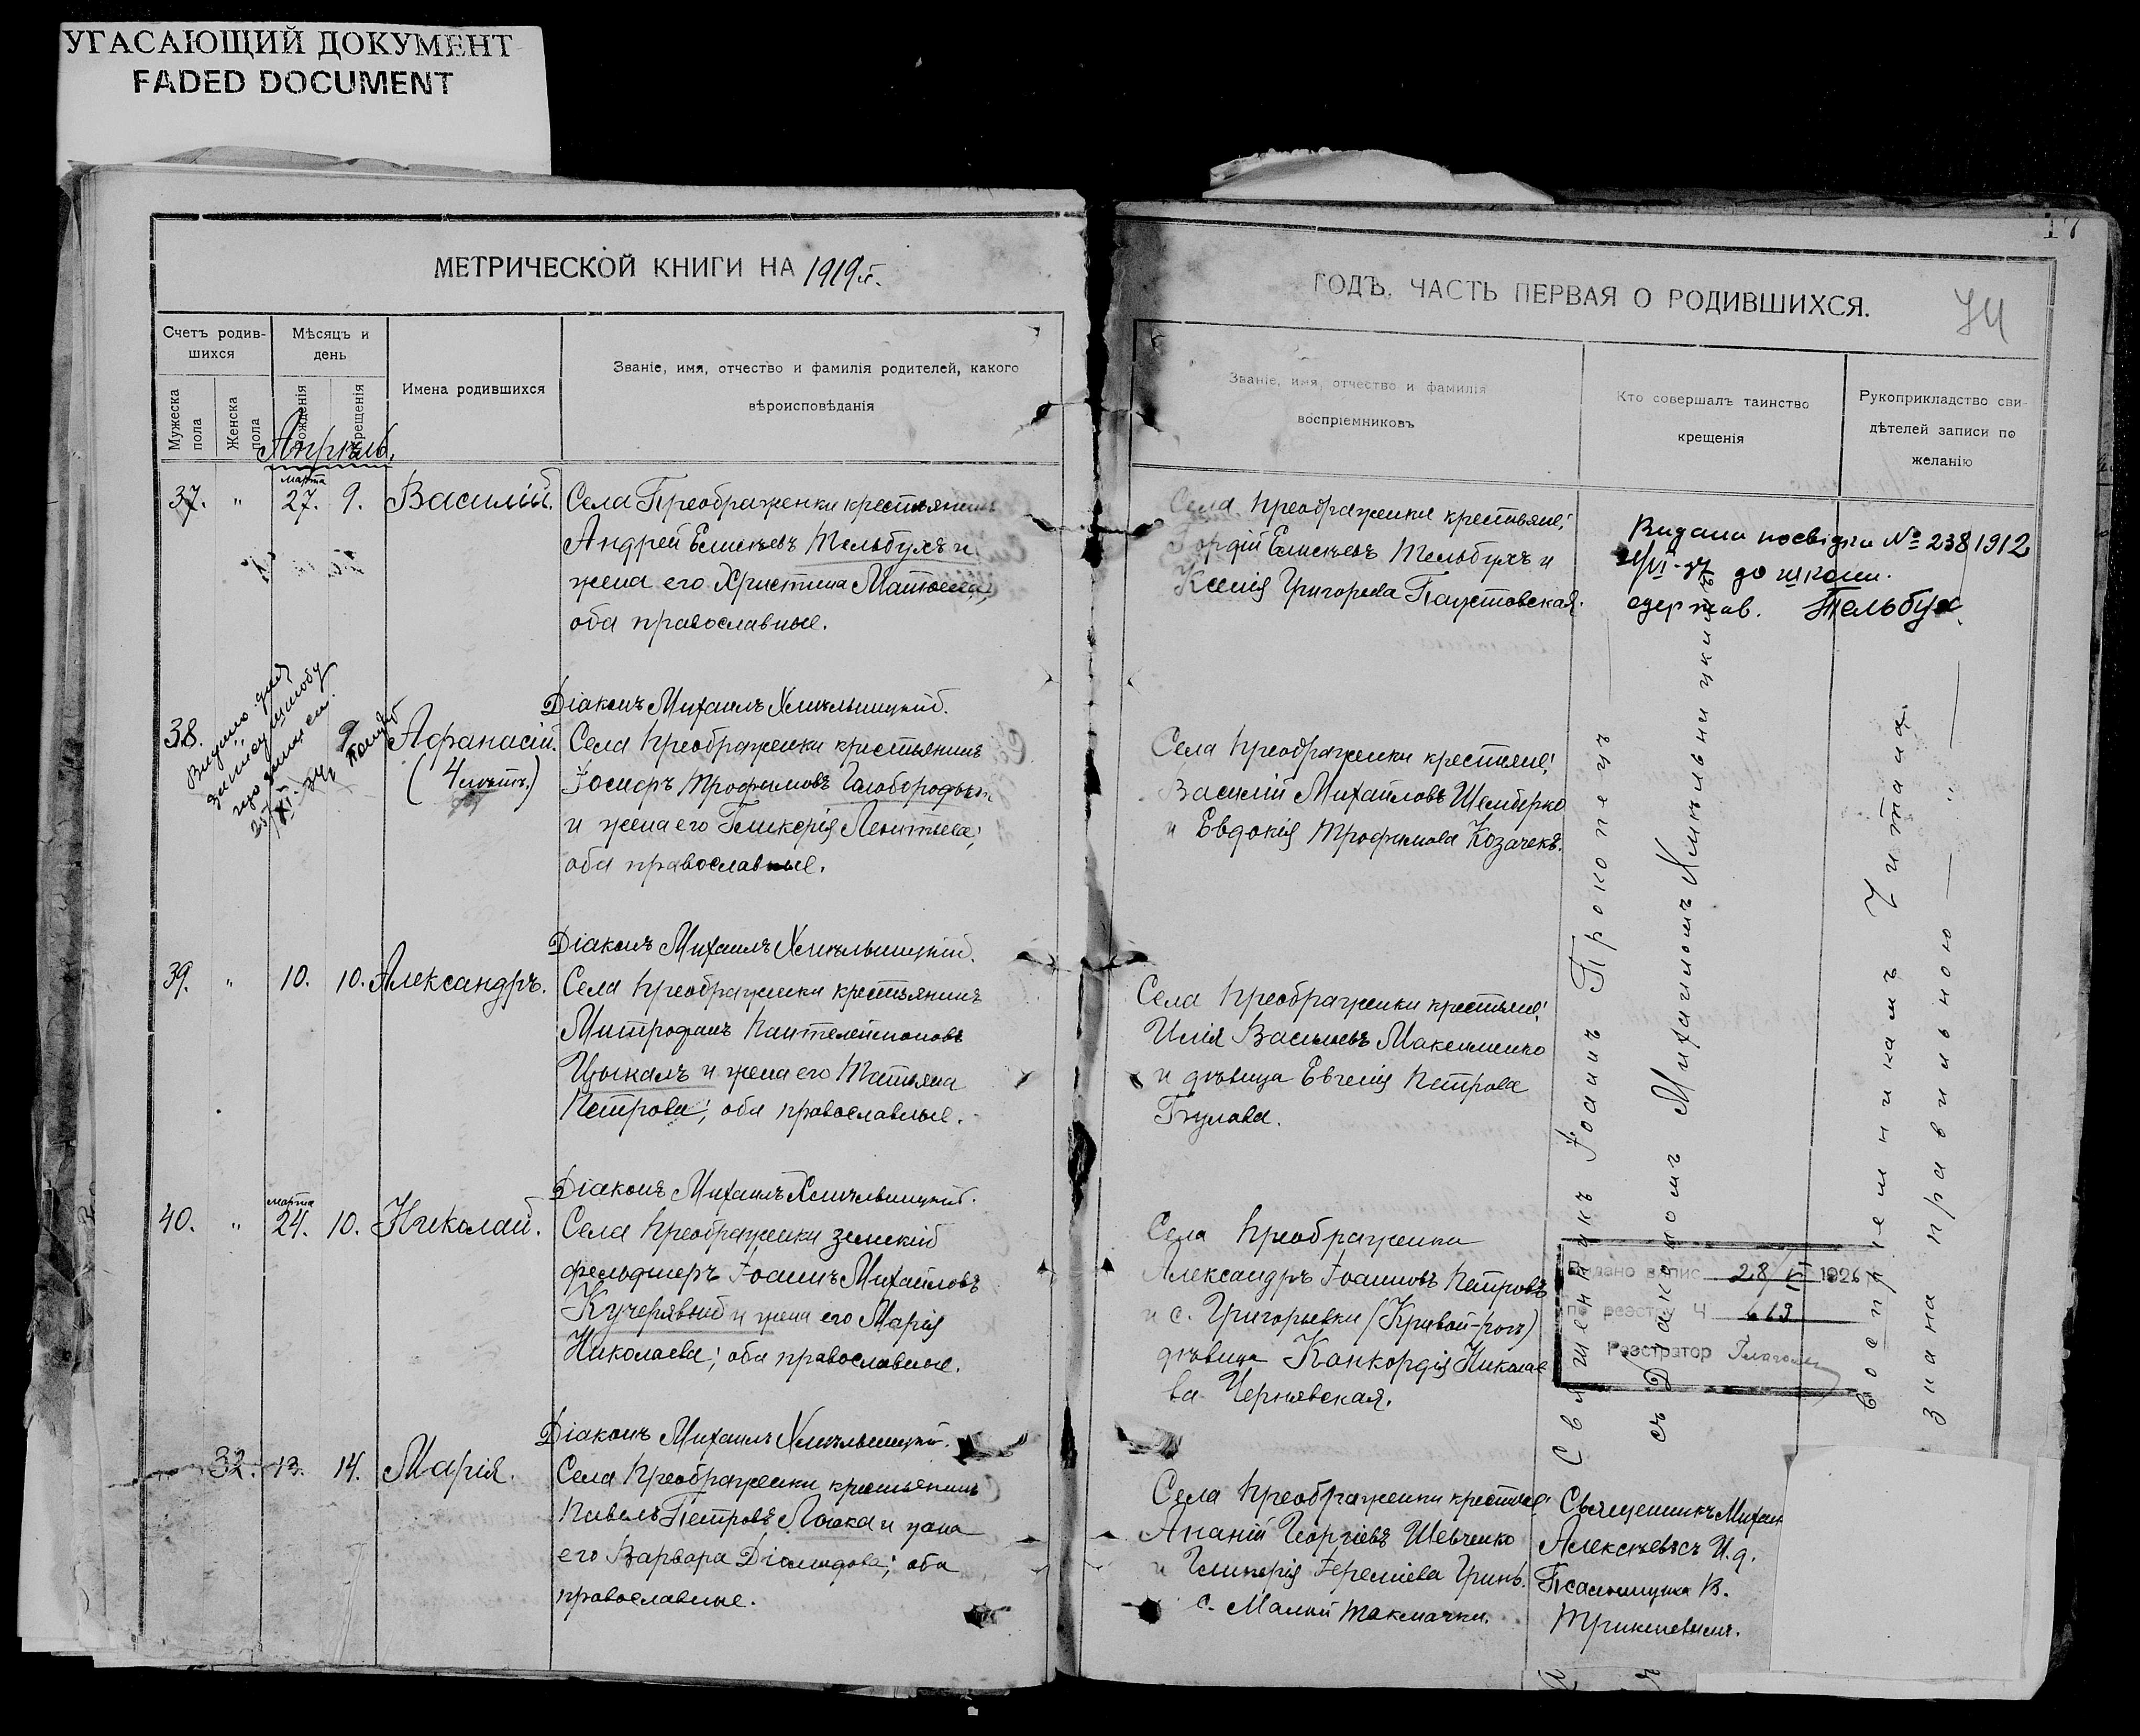 УГАСАЮЩИЙ ДОКУМЕНТ
FADED DOCUMENT
МЕТРИЧЕСКОЙ КНИГИ НА 1919 г.
Счетъ родив-
шихся
Мѣсяцъ и
день
Имена родившихся
Званіе, имя, отчество и фамилія родителей, какого
вѣроисповѣданія
Мужеска
пола
Женска
пола
Рожденія
Крещенія
Апрѣль.
марта
37. " 27. 9. Василій. Села Преображенки крестьянинъ
Андрей Елисѣевъ Тельбухъ и
жена его Христина Матѳеева,
оба православные.
Діаконъ Михаилъ Хмѣльницкій.
38. " 9. Аѳанасій. Села Преображенки крестьянинъ
(4 лѣтъ.) Іосифъ Трофимовъ Голобородько
и жена его Гликерія Леонтьева;
оба православные.
25/XI-34
Діаконъ Михаилъ Хмѣльницкій.
39. " 10. 10. Александръ. Села Преображенки крестьянинъ
Митрофанъ Пантелеймоновъ
Цыкалъ и жена его Татьяна
Петрова; оба православные.
Діаконъ Михаилъ Хмѣльницкій.
марта
40. " 24. 10. Николай. Села Преображенки земскій
фельдшеръ Іоаннъ Михайловъ
Кучерявый и жена его Марія
Николаева; оба православные.
Діаконъ Михаилъ Хмѣльницкій.
32. 13. 14. Марія. Села Преображенки крестьянинъ
Павелъ Петровъ и жена
его Варвара Діомидова; оба
православные.
17
ГОДЪ, ЧАСТЬ ПЕРВАЯ О РОДИВШИХСЯ.
74
Званіе, имя, отчество и фамилія
воспріемниковъ
Кто совершалъ таинство
крещенія
Рукоприкладство сви-
дѣтелей записи по
желанію
Села Преображенки крестьяне:
Гордій Елисѣевъ Тельбухъ и
Ксенія Григорьева Паустовская.
Видана посвідка № 238 1912
до школи.
одержав. Тельбух.
Села Преображенки крестьяне:
Василій Михайловъ Шемберко
и Евдокія Трофимова Козачекъ.
Села Преображенки крестьяне:
Илія Васильевъ Максименко
и дѣвица Евгенія Петрова
Булава.
Села Преображенки
Александръ Іоанновъ Петровъ
и с. Григорьевки (Кривой-рогъ)
дѣвица Конкордія Николае
ва Чернявская.
Села Преображенки крестьяне:
Ананій Георгіевъ Шевченко
и Гликерія Іереміева Гринь.
с. Малой Токмачки.
Священникъ Іоаннъ Прокопецъ
съ Діакономъ Михаиломъ Хмѣльницкимъ
воспріемникамъ Читана.
знана правильною
Видано випис 28/VI 1926
по реєстру Ч 619
Реєстратор
Священникъ Михаил
Алексѣевъ съ И. д.
Псаломщика В.